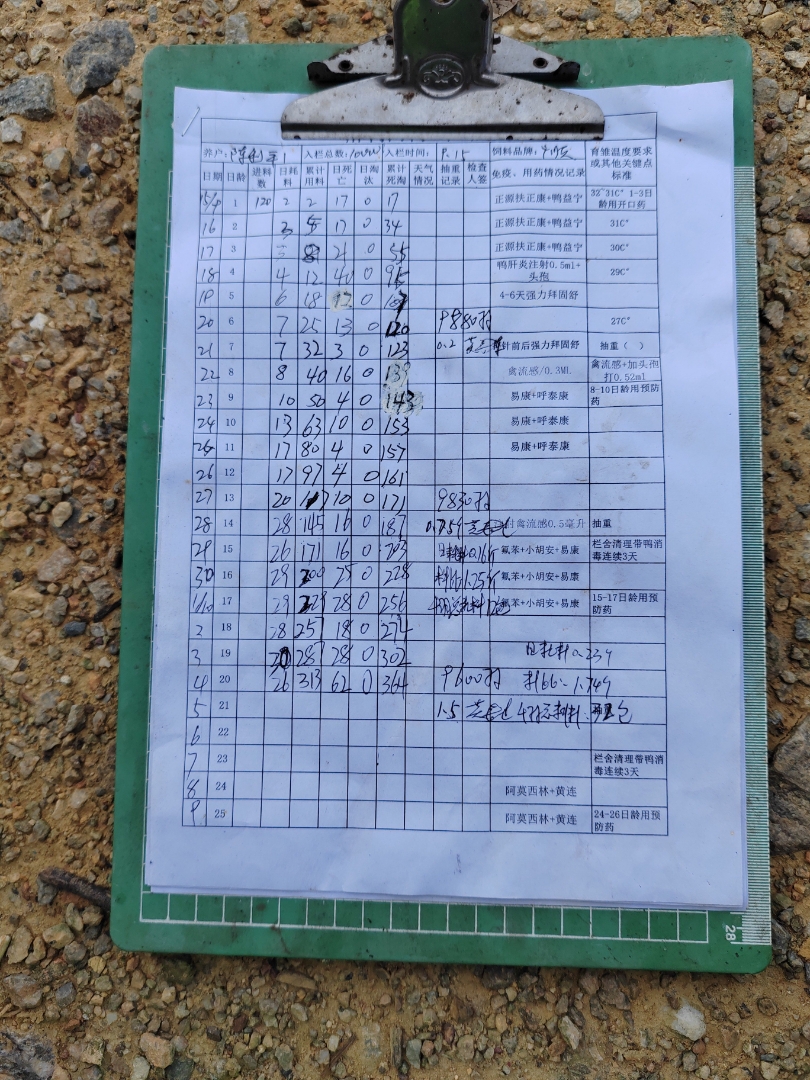 养户： 入栏总数： 入栏时间：9.15 饲料品牌： 育雏温度要求或其他关键点标准
日期 日龄 进料数 日耗料 累计用料 日死亡 日淘汰 累计死淘 天气情况 抽重记录 检查人签 免疫、用药情况记录
15/9 1 120 2 2 17 0 17 正源扶正康+鸭益宁 32~31C° 1-3日龄用开口药
16 2 3 5 17 0 34 正源扶正康+鸭益宁 31C°
17 3 21 0 55 正源扶正康+鸭益宁 30C°
18 4 4 12 40 0 95 鸭肝炎注射0.5ml+头孢 29C°
19 5 6 18 12 0 107 4-6天强力拜固舒
20 6 7 25 13 0 120 9880羽 27C°
21 7 7 32 3 0 123 0.2 针前后强力拜固舒 抽重（ ）
22 8 8 40 16 0 139 禽流感/0.3ML 禽流感+加头孢打0.52ml
23 9 10 50 4 0 143 易康+呼泰康 8-10日龄用预防药
24 10 13 63 10 0 153 易康+呼泰康
25 11 17 80 4 0 157 易康+呼泰康
26 12 17 97 4 0 161
27 13 20 117 10 0 171 9830羽
28 14 28 145 16 0 187 0.759 禽流感0.5毫升 抽重
29 15 26 171 16 0 203 氟苯+小胡安+易康 栏舍清理带鸭消毒连续3天
30 16 29 200 25 0 228 氟苯+小胡安+易康
1/10 17 29 229 28 0 256 氟苯+小胡安+易康 15-17日龄用预防药
2 18 28 257 18 0 274
3 19 287 28 0 302 日耗料0.234
4 20 26 313 62 0 364 9600羽 1.749
5 21 1.5
6 22
7 23 栏舍清理带鸭消毒连续3天
8 24 阿莫西林+黄连
9 25 阿莫西林+黄连 24-26日龄用预防药
28